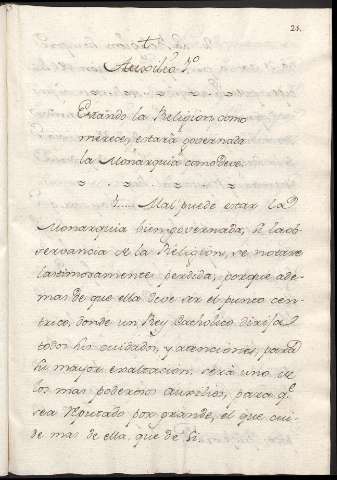 25.
Auxilio 1.º
Estando la Religion como
merece, estará governada
la Monarquia como deve.
1. Mal puede estar la
Monarquia bien governada, si la ob-
servancia de la Religion, se notare
lastimosamente perdida; porque ade-
mas de que ella deve ser el punto cen-
trico, donde un Rey Catholico dirija
todos sus cuidados, y atenciones, para
su mayor exaltacion, será uno de
los mas poderosos auxilios, para q.e
sea reputado por grande, el que cui-
de mas de ella, que de si.